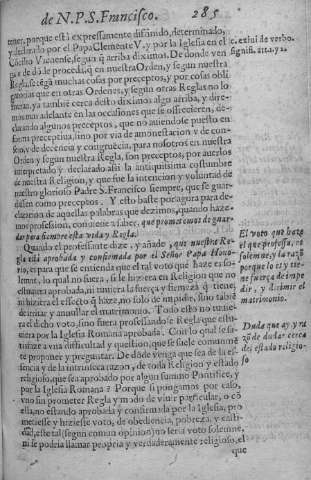 de N. P. S. Francisco. 285
tener, porque està expressamente difinido, determinado,
y declarado por el Papa Clemente V. y por la Iglesia en el
Cõcilio Vienense, segun q̃ arriba diximos. De donde ven
ga de dõ de procediq̃ en nuestra Orden, y segun nuestra
Regla, se tẽgã muchas cosas por preceptos, y por cosas obli
gatorias que en otras Ordenes, y segun otras Reglas no lo
seran, ya tambiẽ cerca desto diximos algo arriba, y dire-
mos mas adelante en las occasiones que se offrecieren, de-
clarando algunos preceptos, que no auiendose puesto en
forma preceptiua, sino por via de amonestacion y de con-
sejo, y de decencia y congruẽcia, para nosotros en nuestra
Orden y segun nuestra Regla, son preceptos, por auerlos
interpretado y declarado assi la antiquissima costumbre
de nuestra Religion, y que fue la intencion y voluntad de
nuestro glorioso Padre S. Francisco siempre, que se guar-
dassen como preceptos. Y esto baste por agora para de-
claracion de aquellas palabras que dezimos, quando haze-
mos profession, conuiene a saber, que prometemos de guar-
dar para siempre esta vida y Regla.
Quando el professante dize, y añade, que nuestra Re-
gla està aprobada y confirmada por el Señor Papa Hono-
rio, es para que se entienda que el tal voto que haze es so-
lemne, lo qual no fuera, si le hiziera en Religion que no
estuuiera aprobada, ni tuuiera la fuerça y firmeza q̃ tiene,
ni hiziera el effecto q̃ haze, no solo de impedir, sino tambiẽ
de irritar y annullar el matrimonio. Todo esto no tuuie-
ra el dicho voto, sino fuera professando se Regla que estu-
uiera por la Iglesia Romana aprobada. Con lo qual se sa-
tisfaze a vna difficultad y question, que se suele comunmẽ
te proponer y preguntar. De dõde venga que sea de la es-
sencia y de la intrinseca razon, de toda Religion y estado
religioso, que sea aprobado por algun summo Pontifice, y
por la Iglesia Romana? Porque si pongamos por caso,
vno sin prometer Regla y modo de viuir particular, o cõ
ella, no estando aprobada y confirmada por la Iglesia, pro
metiesse y hiziesse voto, de obediencia, pobreza, y casti-
dad, este tal (segun comun opinion) no seria voto solemne,
ni se podria llamar propria y verdaderamente religioso, el
que
c. exiui de verbo.
signifi. art. 1.
El voto que haze
el que professa, es
solemne, y la razõ
porque lo es y tie-
ne fuerça de impe
dir, y dirimir el
matrimonio.
Duda que ay y ra
zõ de dudar cerca
del estado religio-
so